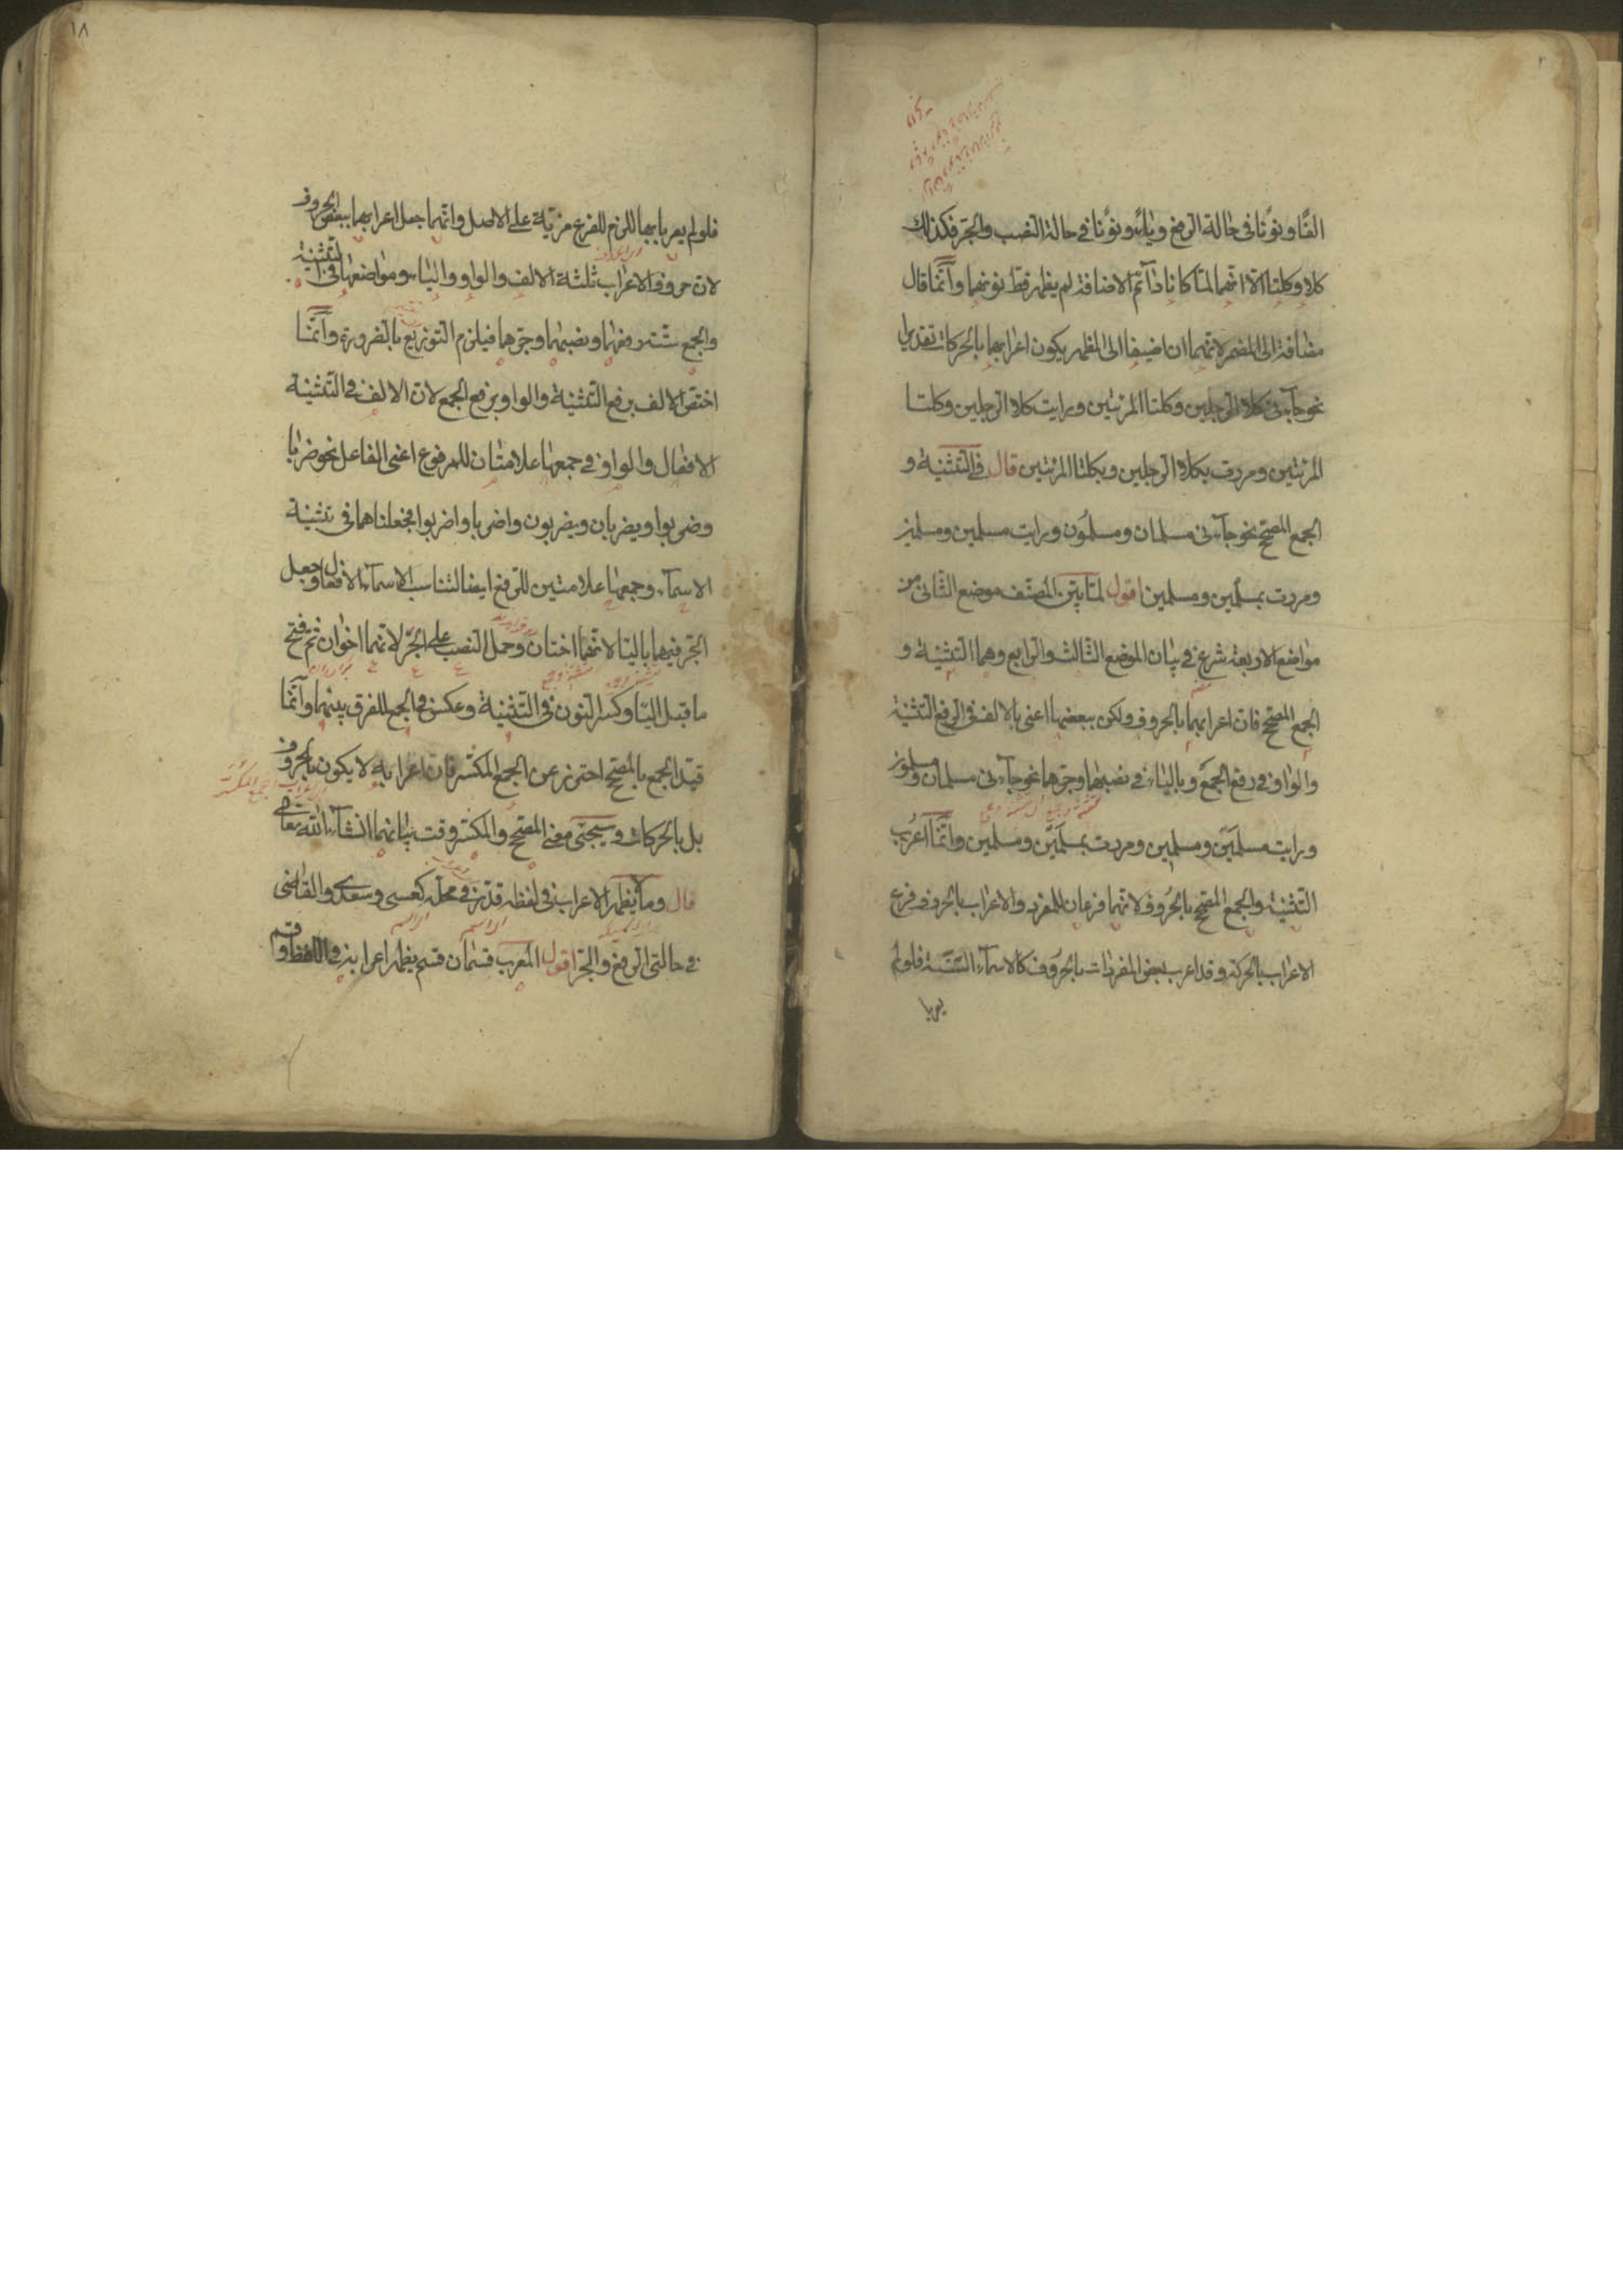 الفًا ونونًا فى حالة الرفع وياءً ونونًا فى حالة النصب والجر فكذلك
كلا وكلتا الا انهما لما كانا دائم الاضافة لم يظهر قط نونهما وانما قال
مضافة الى المضمر لانهما ان اضيفا الى المظهر يكون اعرابهما بالحركات تقديرا
نحو جاءنى كلا الرجلين وكلتا المرئتين ورايت كلا الرجلين وكلتا
المرئتين ومررت بكلا الرجلين وبكلتا المرئتين قال فى التثنية و
الجمع المصحح نحو جاءنى مسلمان ومسلمون ورايت مسلمين ومسلمين
ومررت بمسلمين ومسلمين اقول لما بين المصنف موضع الثانى من
مواضع الاربعة شرع فى بيان الموضع الثالث والرابع وهما التثنية و
الجمع المصحح فان اعرابهما بالحروف ولكن ببعضها اعنى بالالف فى الرفع التثنية
والواو فى رفع الجمع وبالياء فى نصبهما وجرهما نحو جاءنى مسلمان ومسلمون
ورايت مسلمَين ومسلمين ومررت بمسلمَين ومسلمين وانما اعرب
التثنية والجمع المصحح بالحروف لانهما فرعان للمفرد والاعراب بالحروف فرع
الاعراب بالحركة وقد اعرب بعض المفردات بالحروف كالاسماء الستة فلو لم
يعربا
١٨
فلو لم يعربا بها للزم للفرع مزية على الاصل وانما جعل اعرابهما ببعض الحروف
لان حروف الاعراب ثلثة الالف والواو والياء ومواضعها فى التثنية
والجمع ستة رفعهما ونصبهما وجرهما فيلزم التوزيع بالضرورة وانما
اختص الالف برفع التثنية والواو برفع الجمع لان الالف فى التثنية
الافعال والواو فى جمعها علامتان للمرفوع اعنى الفاعل نحو ضربا
وضربوا ويضربان ويضربون واضربا واضربوا فجعلناهما فى تثنية
الاسماء وجمعها علامتين للرفع ايضا لتناسب الاسماء الافعال وجعل
الجر فيهما بالياء لانهما اختان وحمل النصب على الجر لانهما اخوان ثم فتح
ما قبل الياء وكسر النون فى التثنية وعكس فى الجمع للفرق بينهما وانما
قيد الجمع بالمصحح احترز عن الجمع المكسر فان اعرابه لا يكون بالحروف
بل بالحركات وسيجئ معنى المصحح والمكسر وقت بيانهما انشاء الله تعالى
قال وما لا يظهر الاعراب فى لفظه قدر فى محله كعصى وسعدى والقاضى
فى حالتى الرفع والجر اقول المعرب قسمان قسم يظهر اعرابه فى اللفظ وقسم